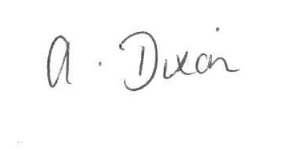 A. Dixon